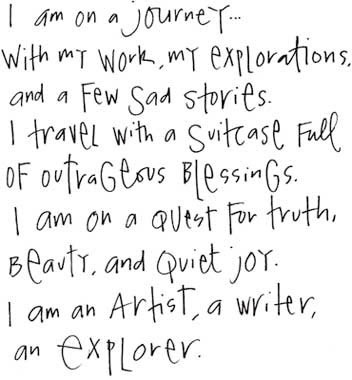 I am on a journey...
With my work, my explorations,
and a few sad stories.
I travel with a suitcase full
of outrageous blessings.
I am on a quest for truth,
beauty, and quiet joy.
I am an artist, a writer,
an explorer.